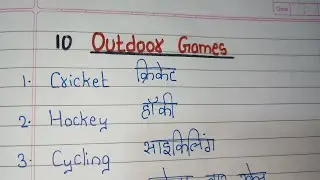 10 Outdoor Games
1. Cricket क्रिकेट
2. Hockey हॉकी
3. Cycling साइकिलिंग